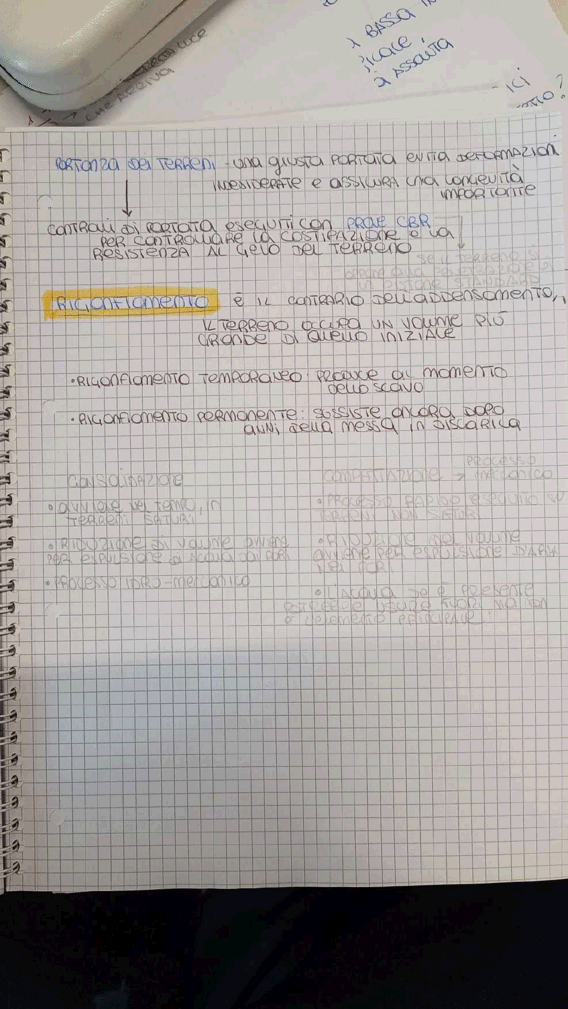 BASSA
ASSAULTA
CHE ARRIVA
PORTANZA DEI TERRENI - una giusta PORTATA EVITA DEFORMAZIONI
INDESIDERATE E ASSICURA UNA LONGEVITÀ
IMPORTANTE
CONTROLLI DI PORTATA ESEGUITI CON PROVE CBR
PER CONTROLLARE LA COSTIPAZIONE E LA
RESISTENZA AL GELO DEL TERRENO
RIGONFIAMENTO È IL CONTRARIO DELL'ADDENSAMENTO,
IL TERRENO OCCUPA UN VOLUME PIÙ
GRANDE DI QUELLO INIZIALE
• RIGONFIAMENTO TEMPORANEO: PRODUCE AL MOMENTO
DELLO SCAVO
• RIGONFIAMENTO PERMANENTE: SUSSISTE ANCORA DOPO
ANNI DELLA MESSA IN DISCARICA
CONSOLIDAZIONE
• AVVIENE NEL TEMPO, IN
TERRENI SATURI
• RIDUZIONE DI VOLUME AVVIENE
PER ESPULSIONE DI ACQUA DAI PORI
• PROCESSO IDRO-MECCANICO
COMPATTAZIONE → PROCESSO
MECCANICO
• PROCESSO RAPIDO ESEGUITO SU
TERRENI NON SATURI
• RIDUZIONE DEL VOLUME
AVVIENE PER ESPULSIONE D'ARIA
NEI PORI
• L'ACQUA SE È PRESENTE